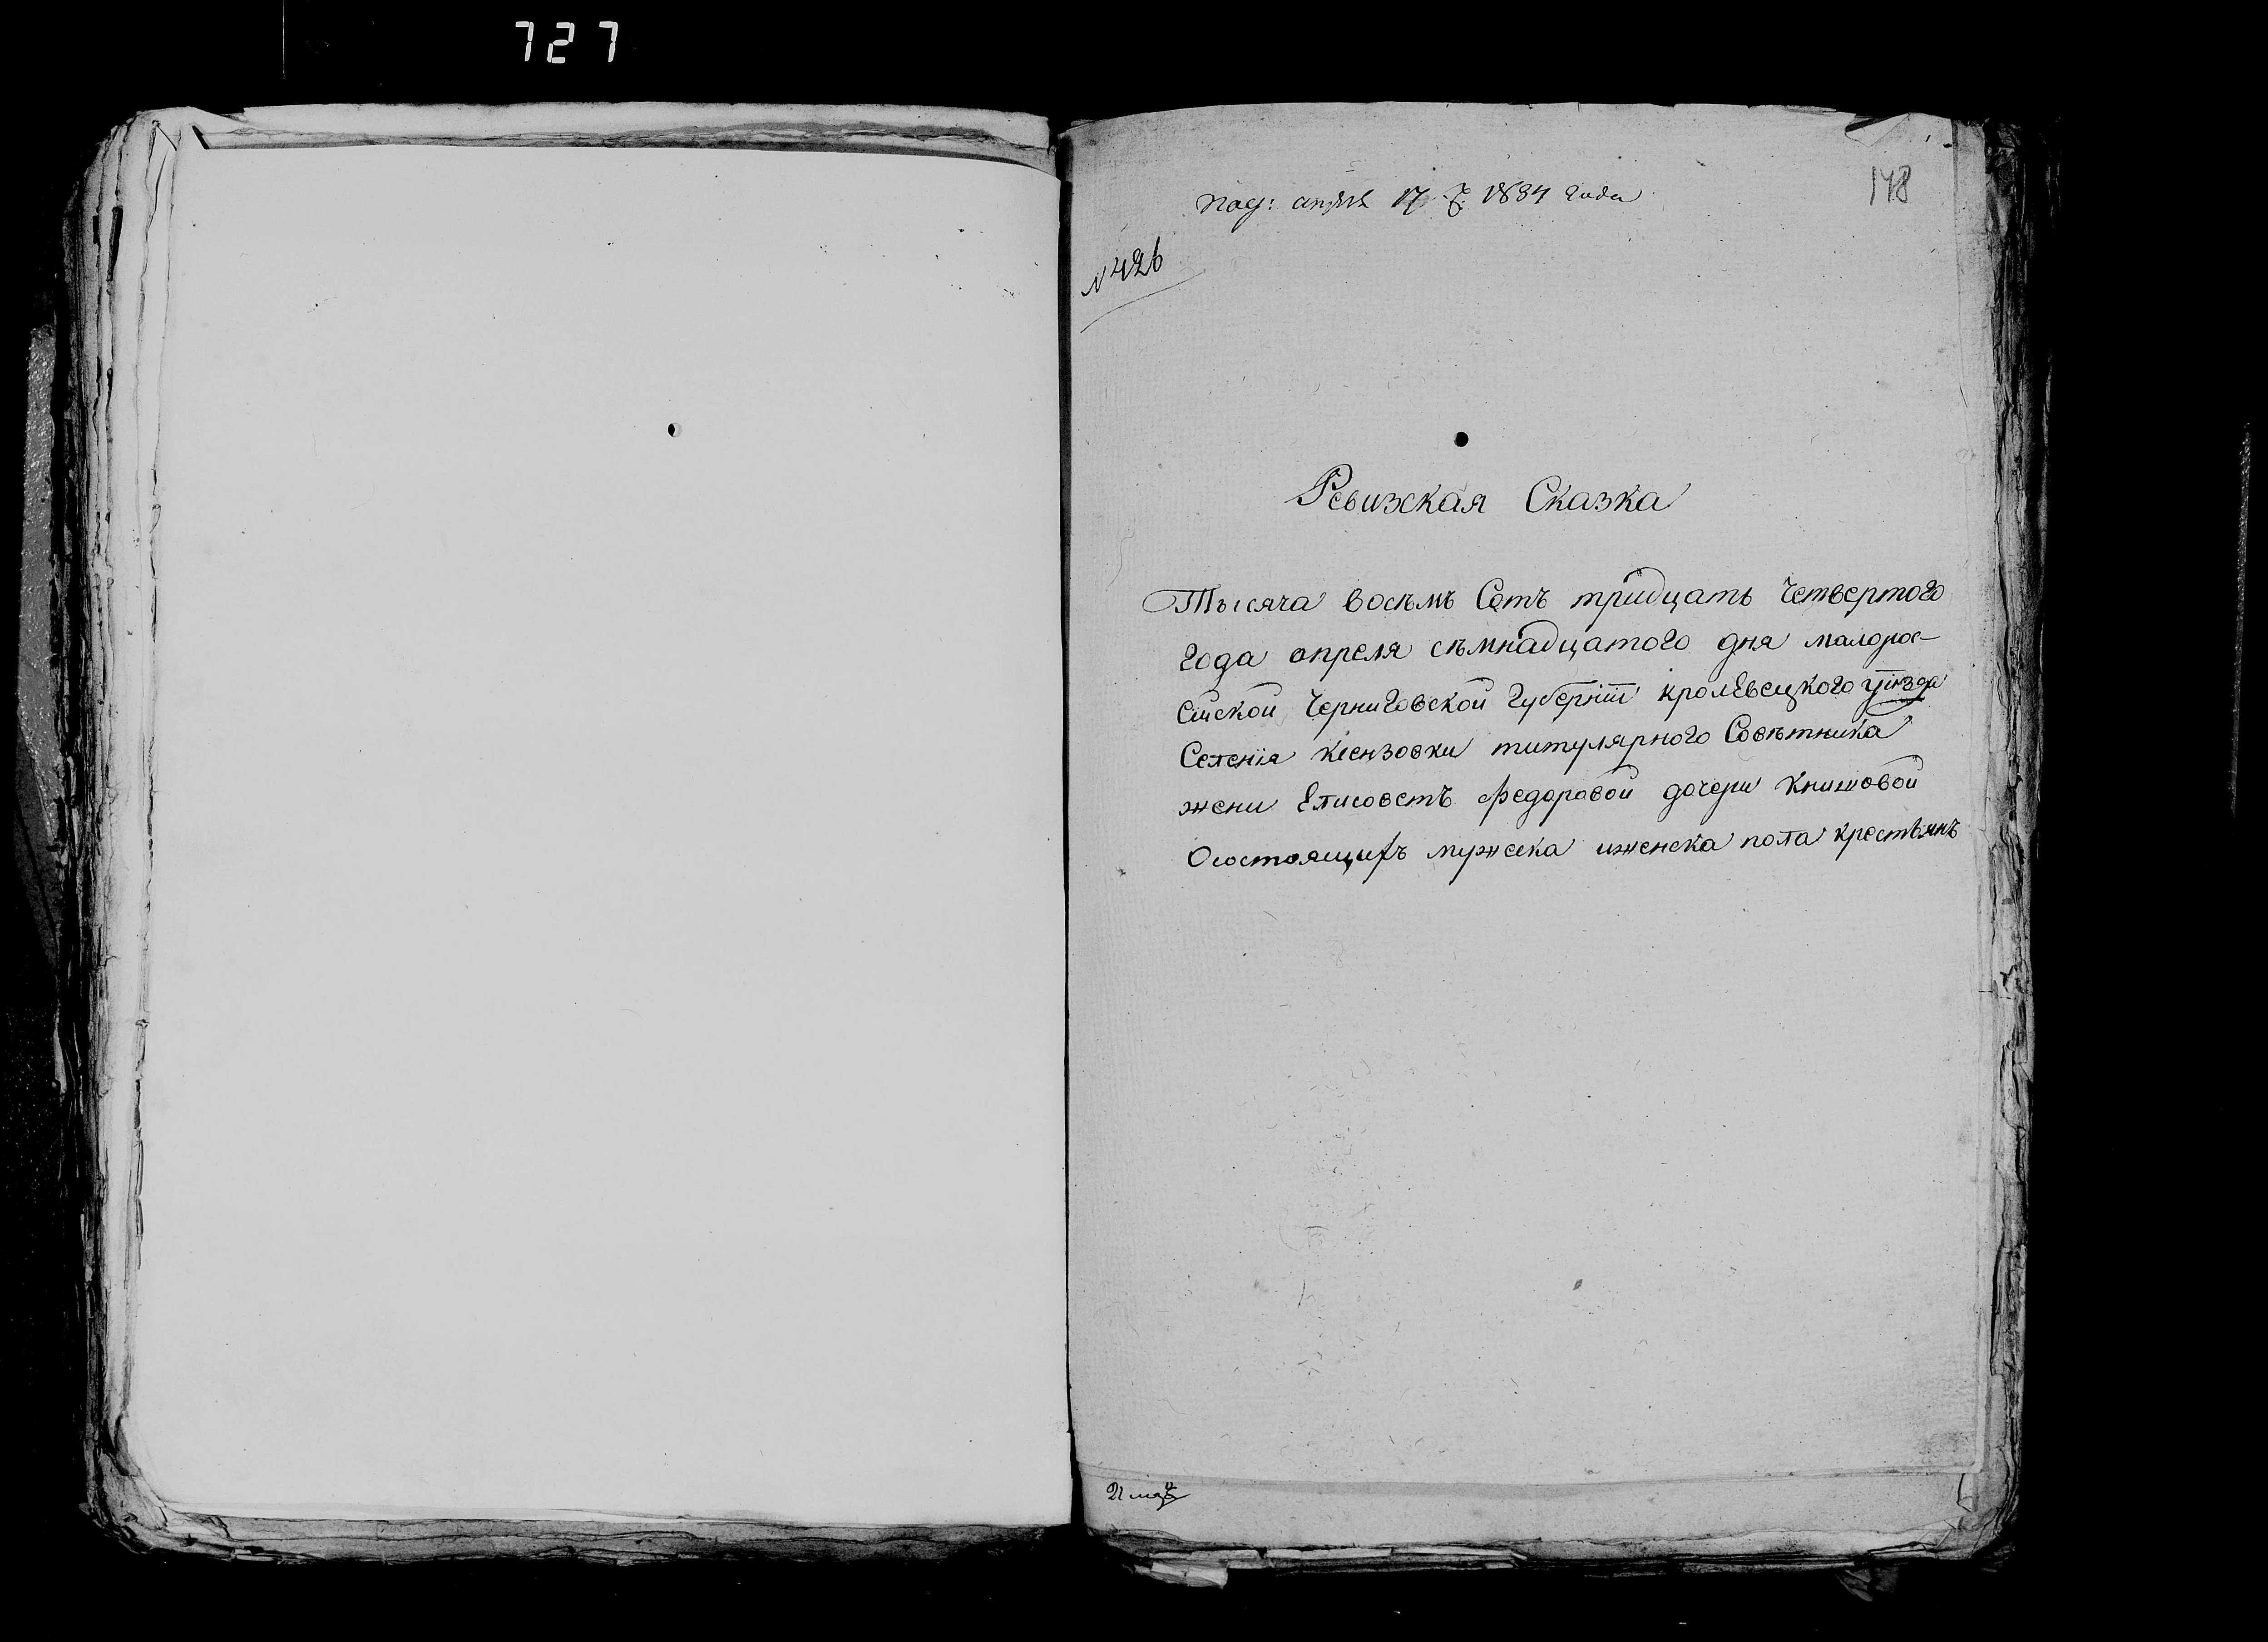 727
148
Под: апреля 17 1834 года
N 426
Ревизская Сказка
Тысяча восемь Сотъ тридцать Четвертого
года апреля съмнадцатого дня малорос-
сійской Черниговской Губерніи кролѣвецкого уѣзда
Селенія ксензовки титулярного Совѣтника
жени Елисоветъ Федоровой дочери Книшовой
Осостоящихъ мужеска иженска пола крестьянъ